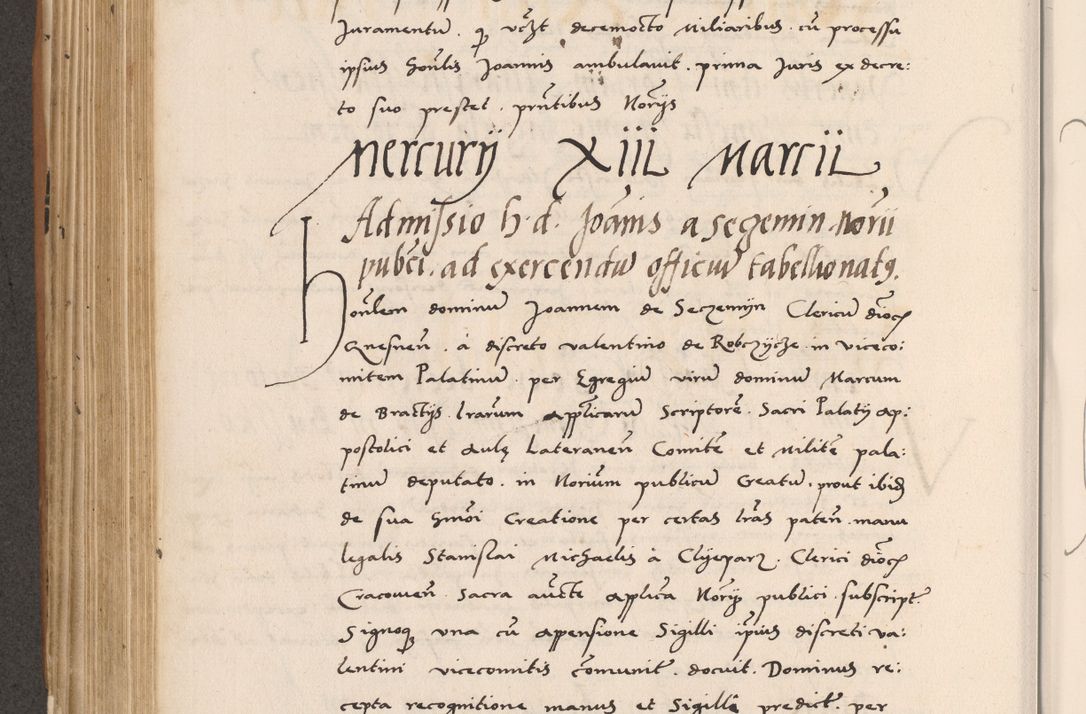 Juramentu̅ . q̨ vc̅zt decemocto miliaribus . cu̅ processu
ipsius hon̅lis Joannis ambulavit . prima Juris ex decre:
to suo prestet . pn̅tibus Nor̅ijs
Mercurij XIII Marcii
Admissio h. d. Joa̅nis a segemin Norii
pub̅ci . ad exercendu̅ officiu̅ tabellionat9.
Hon̅lem dominu̅ Joannem de Seczemijn Clericu̅ dio̅c
Gnesnen̅ . a discreto valentino de Robczijcze . in viceco:
mitem Palatinu̅ . per Egregiu̅ viru̅ dominu̅ Marcum
de Bractijs . l̅raru̅m app̅licaru̅ Scriptore̅ . Sacri Palatij ap:
postolici et Aulę Lateranen̅ Comite̅ et Milite̅ pala:
tinu̅ deputato . in Noriu̅m publicu̅ Creatu̅ . prout ibid
de sua hmo̅i Creatione per certas l̅ras paten̅ . manu
legalis Stanislai Michaelis a Clijeparz . Clerici dio̅c
Cracovien̅ . Sacra auc̅te Ap̅plica Nor̅ij publici . subscript.
Signoq̨ una cu̅ apensione Sigilli ip̅ius discreti va:
lentini vicecomitis co̅munit̅ . docuit . Dominus re:
cepta recognitione manus et Sigilli predict̅ . per